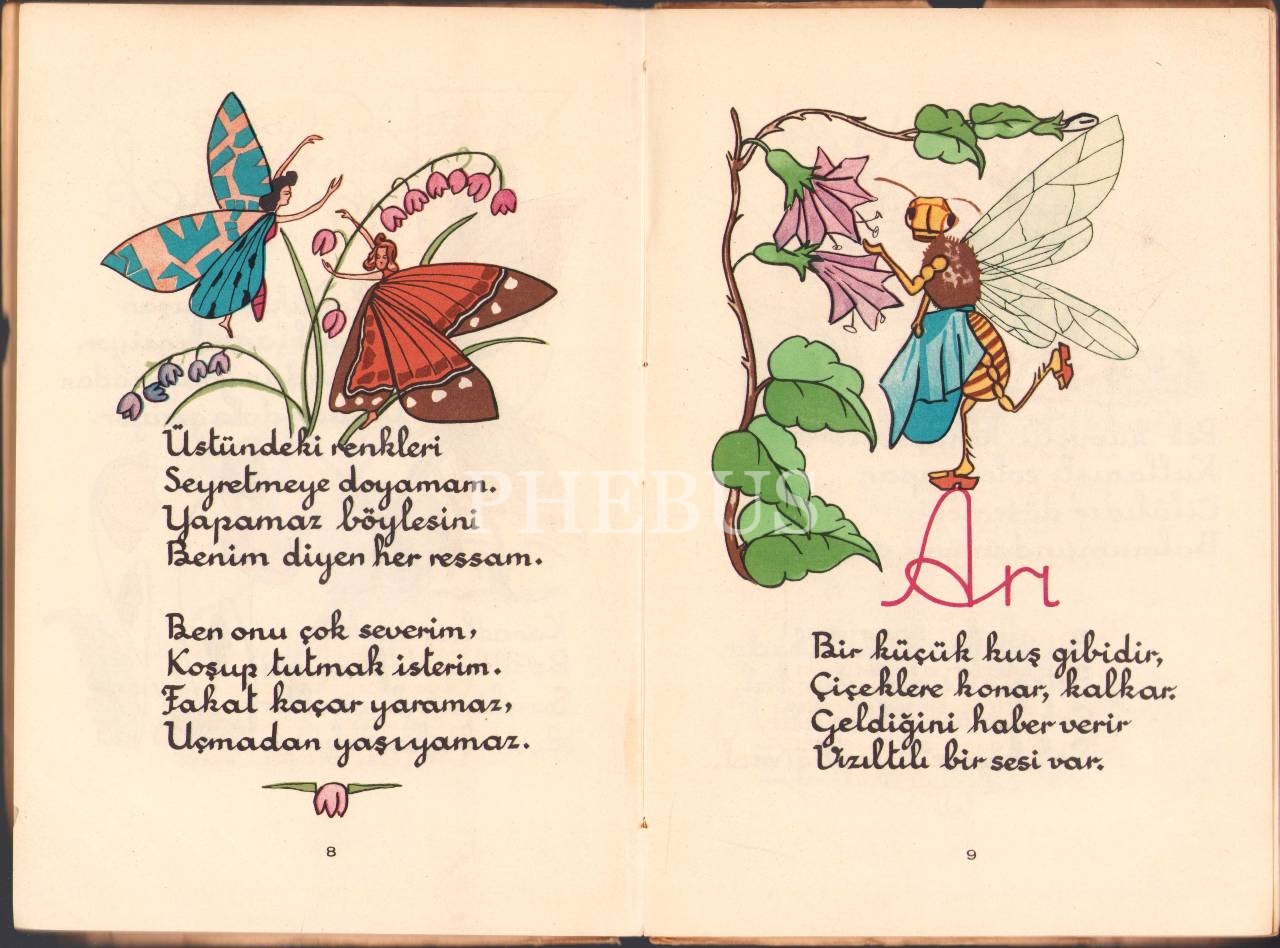 Üstündeki renkleri
Seyretmeye doyamam.
Yapamaz böylesini
Benim diyen her ressam.
Ben onu çok severim,
Koşup tutmak isterim.
Fakat kaçar yaramaz,
Uçmadan yaşıyamaz.
8
PHEBUS
Arı
Bir küçük kuş gibidir,
Çiçeklere konar, kalkar.
Geldiğini haber verir
Vızıltılı bir sesi var.
9